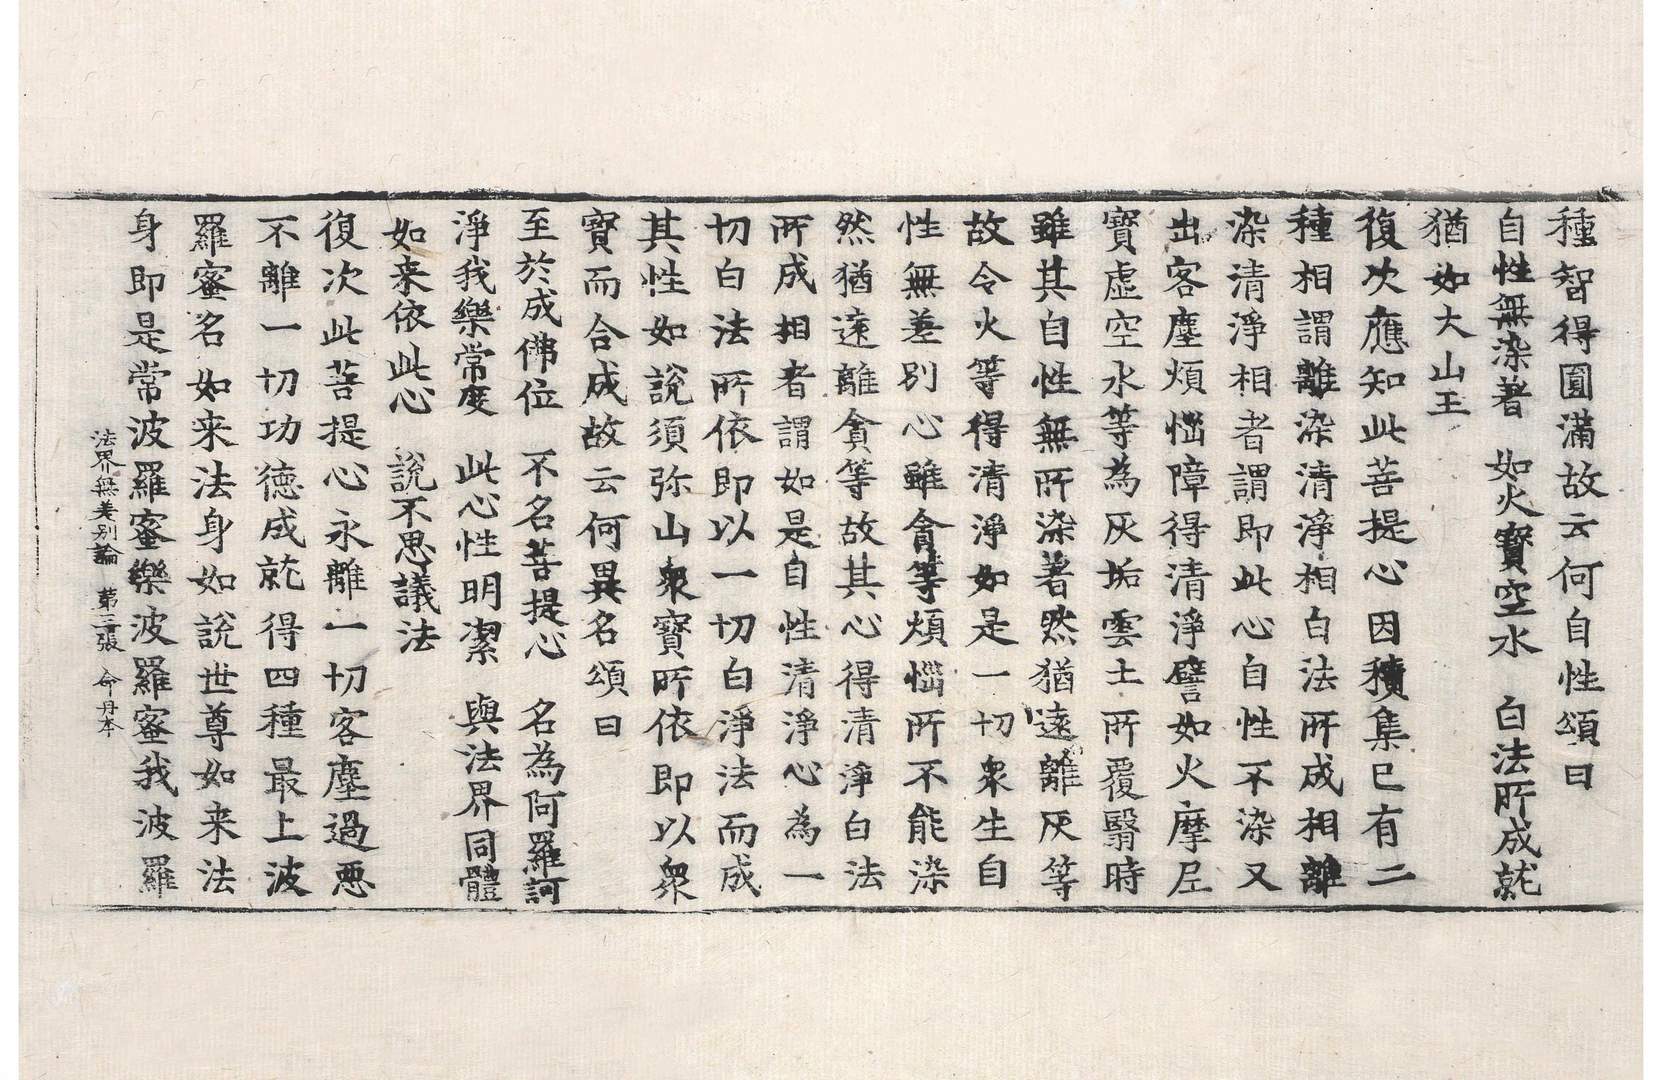 種智得圓滿故云何自性頌曰
自性無染著　如火寶空水　白法所成就
猶如大山王
復次應知此菩提心因積集已有二
種相謂離染清淨相白法所成相離
染清淨相者謂即此心自性不染又
出客塵煩惱障得清淨譬如火摩尼
寶虛空水等為灰垢雲土所覆翳時
雖其自性無所染著然猶遠離灰等
故令火等得清淨如是一切衆生自
性無差別心雖貪等煩惱所不能染
然猶遠離貪等故其心得清淨白法
所成相者謂如是自性清淨心為一
切白法所依即以一切白淨法而成
其性如說須弥山衆寶所依即以衆
寶而合成故云何異名頌曰
至於成佛位　不名菩提心　名為阿羅訶
淨我樂常度　此心性明潔　與法界同體
如来依此心　說不思議法
復次此菩提心永離一切客塵過悪
不離一切功德成就得四種最上波
羅蜜名如来法身如說世尊如来法
身即是常波羅蜜樂波羅蜜我波羅
法界無差別論　第三張　命丹本